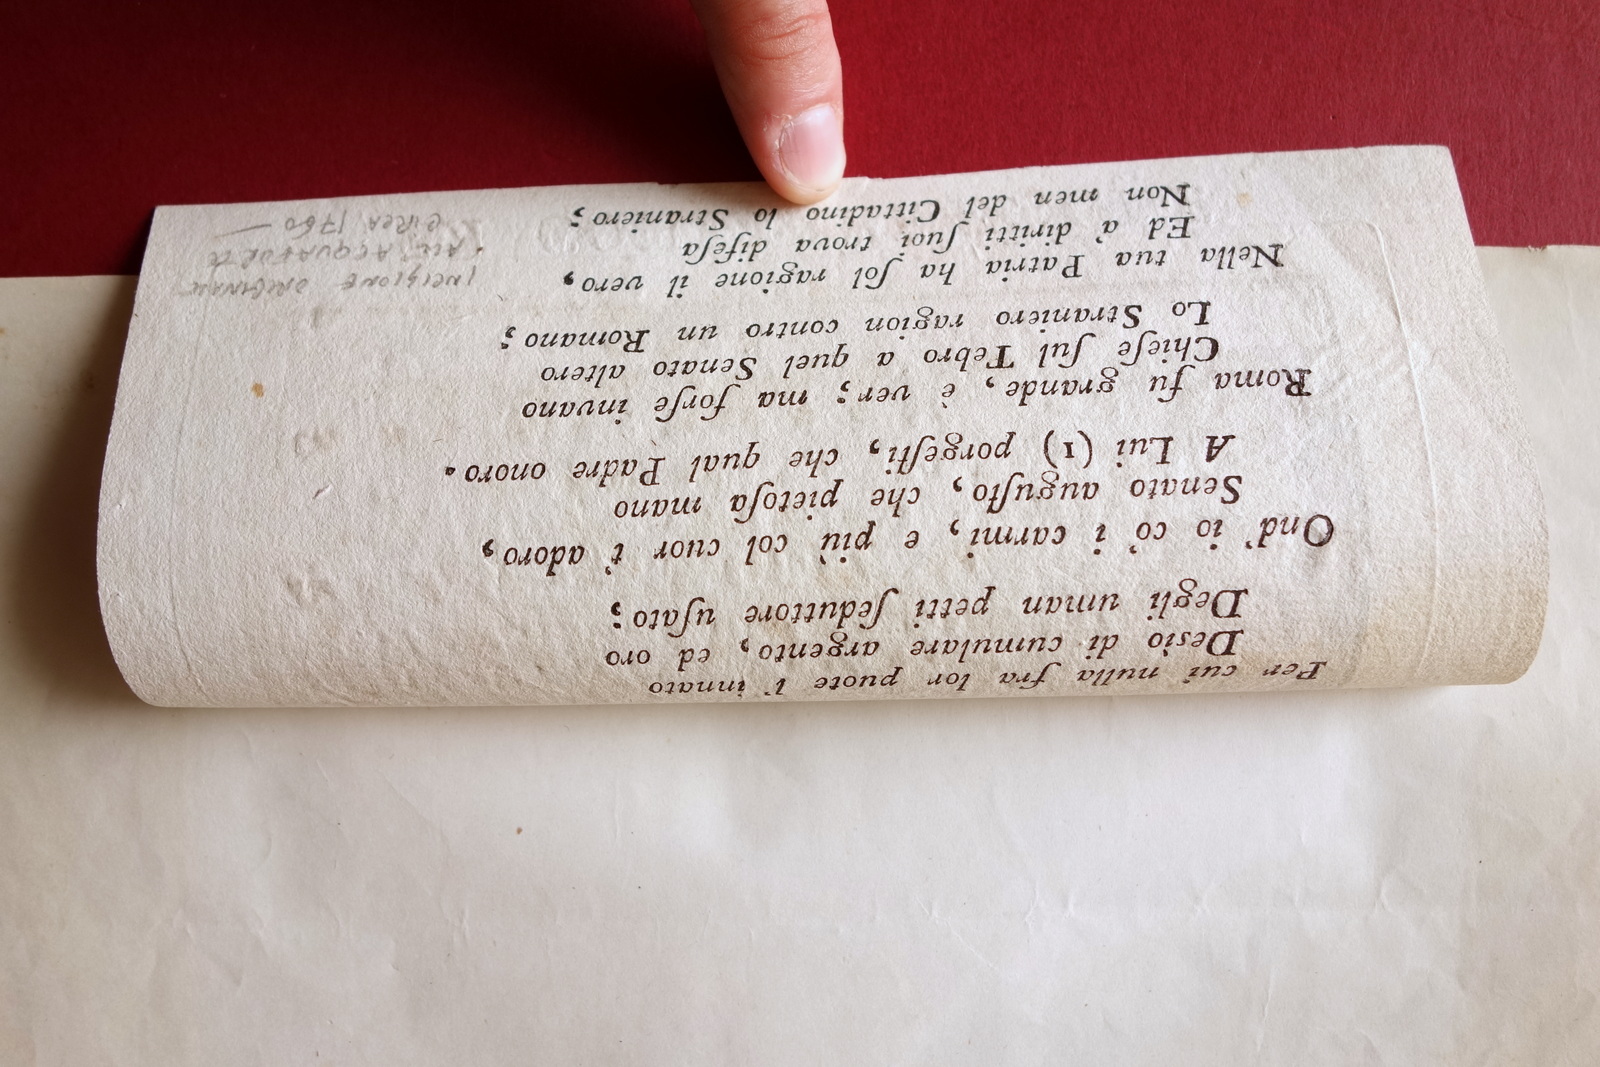 Per cui nulla fra lor puote l' innato
Desio di cumulare argento, ed oro
Degli uman petti ſeduttore uſato;
Ond' io co' i carmi, e più col cuor t' adoro,
Senato auguſto, che pietoſa mano
A Lui (1) porgeſti, che qual Padre onoro.
Roma fu grande, è ver; ma forſe invano
Chieſe ſul Tebro a quel Senato altero
Lo Straniero ragion contro un Romano;
Nella tua Patria ha ſol ragione il vero,
Ed a' diritti ſuoi trova difeſa
Non men del Cittadino lo Straniero;
INCISIONE ORIGINALE
ALL'ACQUAFORTE
CIRCA 1760